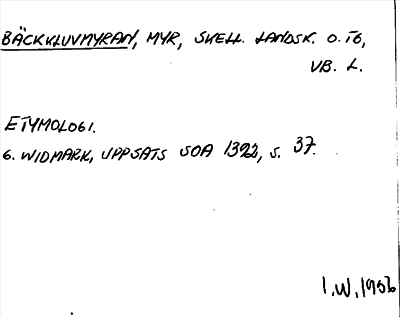 BÄCKKLUVMYRAN, MYR, SKELL. LANDSK. O. TG,
VB. L.
ETYMOLOGI.
G. WIDMARK, UPPSATS SOA 1392, S. 37.
I.W. 1953